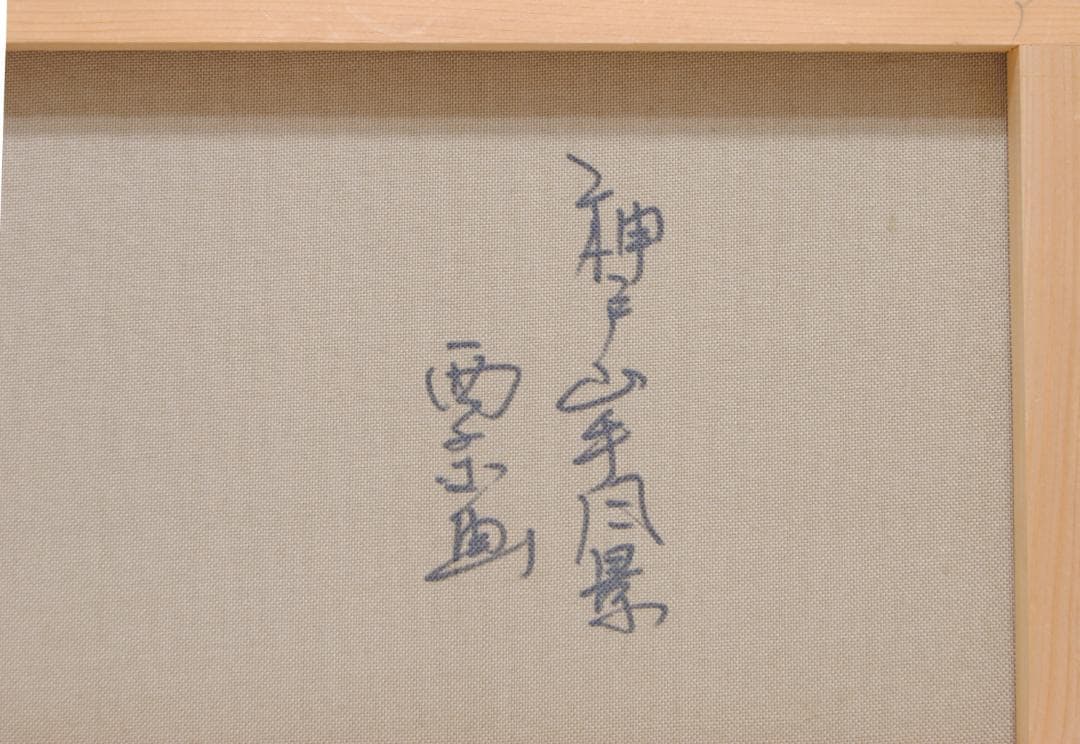 神戸山手風景
西 画